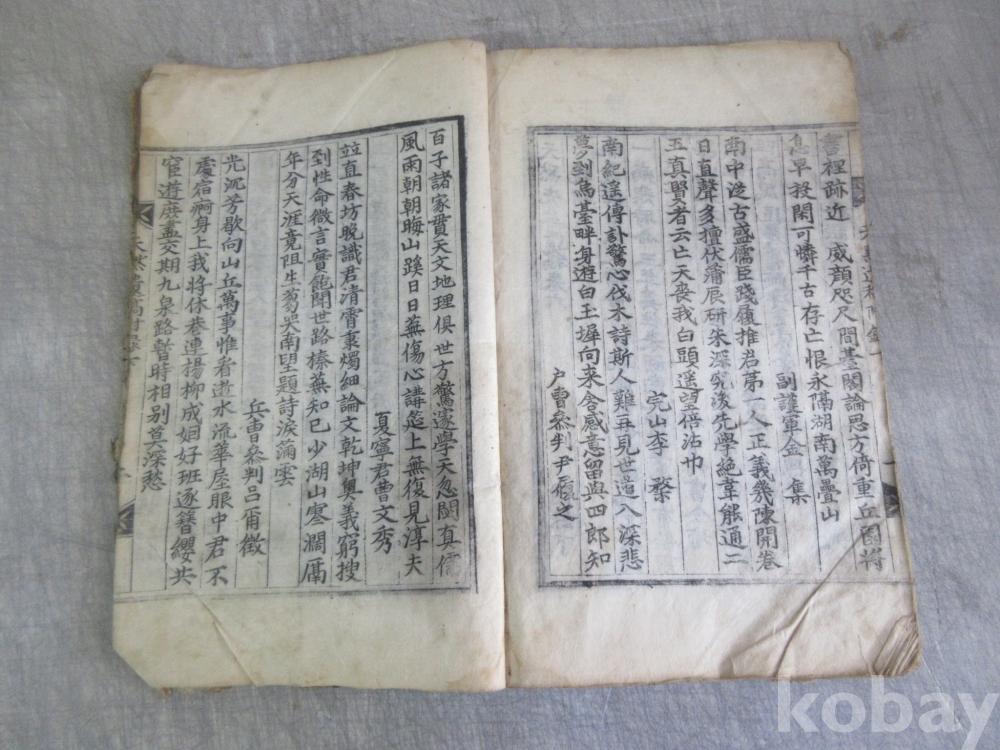 書裡跡近 威顔咫尺間臺閣論思方倚重丘園將
息早投閑可憐千古存亡恨永隔湖南萬疊山
副護軍金 集
南中從古盛儒臣踐履推君苐一人正義幾陳開卷
日直聲多擅伏蒲辰研朱深究浚先學絶韋能通二
五真賢者云亡天喪我白頭遥望倍沾巾
完山李
南紀遥傳訃驚心伐木詩斯人難再見世道八深悲
夢到萬臺畔身遊白玉墀向来含感意留與四郎知
户曹叅判尹
百子諸家貫天文地理俱世方驚邃學天忽閼真儒
風雨朝朝晦山蹊日日蕪傷心講筵上無復見淳夫
夏寧君曺文秀
竝直春坊晚識君凊霄秉燭細論文乾坤奥義窮搜
到性命微言實飽聞世路榛蕪知已少湖山寒濶鴈
年分天涯竟阻生蒭哭南望題詩淚滿雲
兵曹叅判吕甭徵
光沉芳歇向山丘萬事惟看逝水流華屋眼中君不
處宿痾身上我將休巷連揚柳成姻好班逐簪纓共
宦遊庶盡交期九泉路暫時相别莫深愁